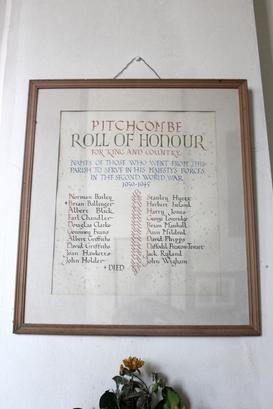 PITCHCOMBE
ROLL OF HONOUR
FOR KING AND COUNTRY
NAMES OF THOSE WHO WENT FROM THIS
PARISH TO SERVE IN HIS MAJESTY'S FORCES
IN THE SECOND WORLD WAR
1939-1945
Norman Bailey
+ Brian Ballinger
Albert Black
Earl Chandler
Douglas Clarke
Evans
Albert Griffiths
David Griffiths
Jean Hawkins
John Holder
Stanley
Herbert Ireland
Harry Jones
George
Brian Marshall
Mildred
David Phipps
Jack Ryland
John Wigham
+ DIED